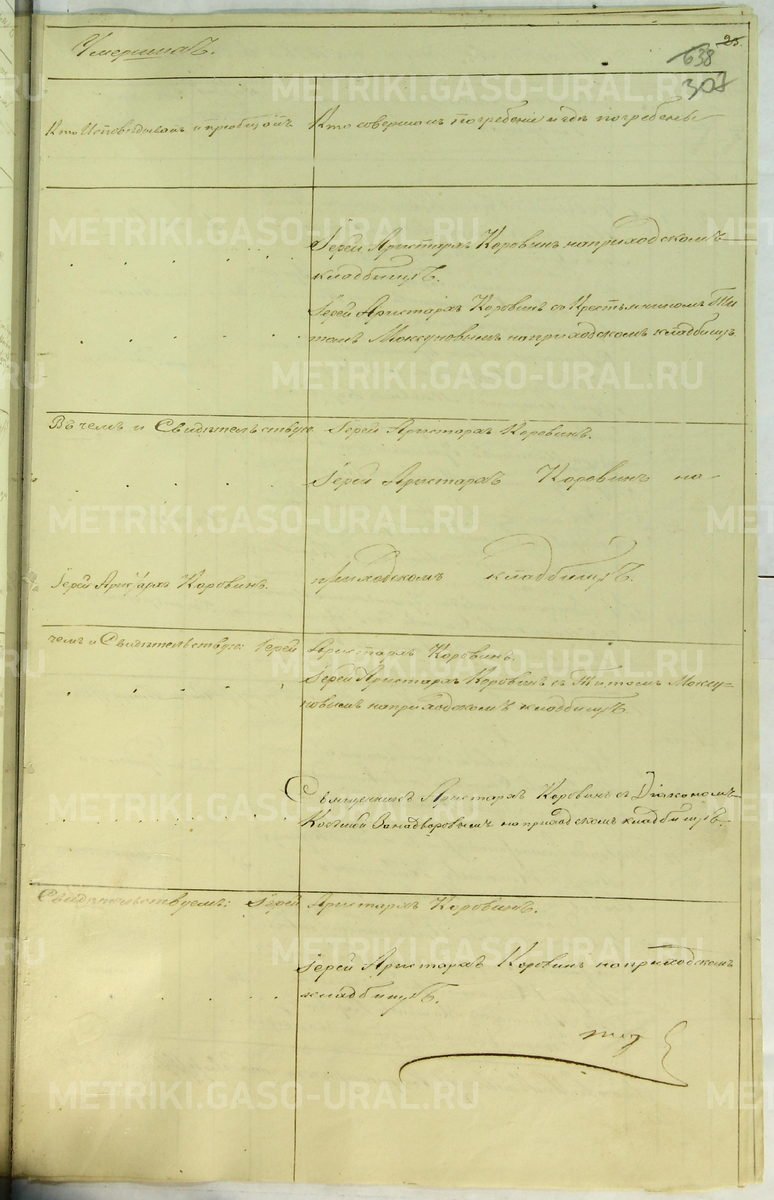 Умершихъ.
25.
638
307
Кто Исповѣдывалъ и пріобщалъ
Кто совершалъ погребеніе и гдѣ погребены
Іерей Аристархъ Коровинъ на приходскомъ
кладбищѣ.
Іерей Аристархъ Коровинъ съ Крестьяниномъ Ти
томъ на приходскомъ кладбищѣ
Въ чемъ и Свидѣтельствую Іерей Аристархъ Коровинъ.
Іерей Аристархъ Коровинъ на
Іерей Аристархъ Коровинъ.
приходскомъ кладбищѣ.
чемъ и Свидѣтельствую: Іерей Аристархъ Коровинъ.
Іерей Аристархъ Коровинъ съ Титомъ
на приходскомъ кладбищѣ.
Священникъ Аристархъ Коровинъ съ Діакономъ
на приходскомъ кладбищѣ.
Свидѣтельствуемъ: Іерей Аристархъ Коровинъ.
Іерей Аристархъ Коровинъ на приходскомъ
кладбищѣ.
METRIKI.GASO-URAL.RU